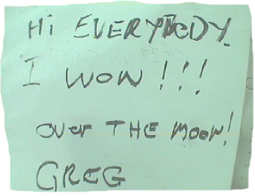 Hi EVERYBODY.
I WON!!!
OVER THE MOON!
GREG